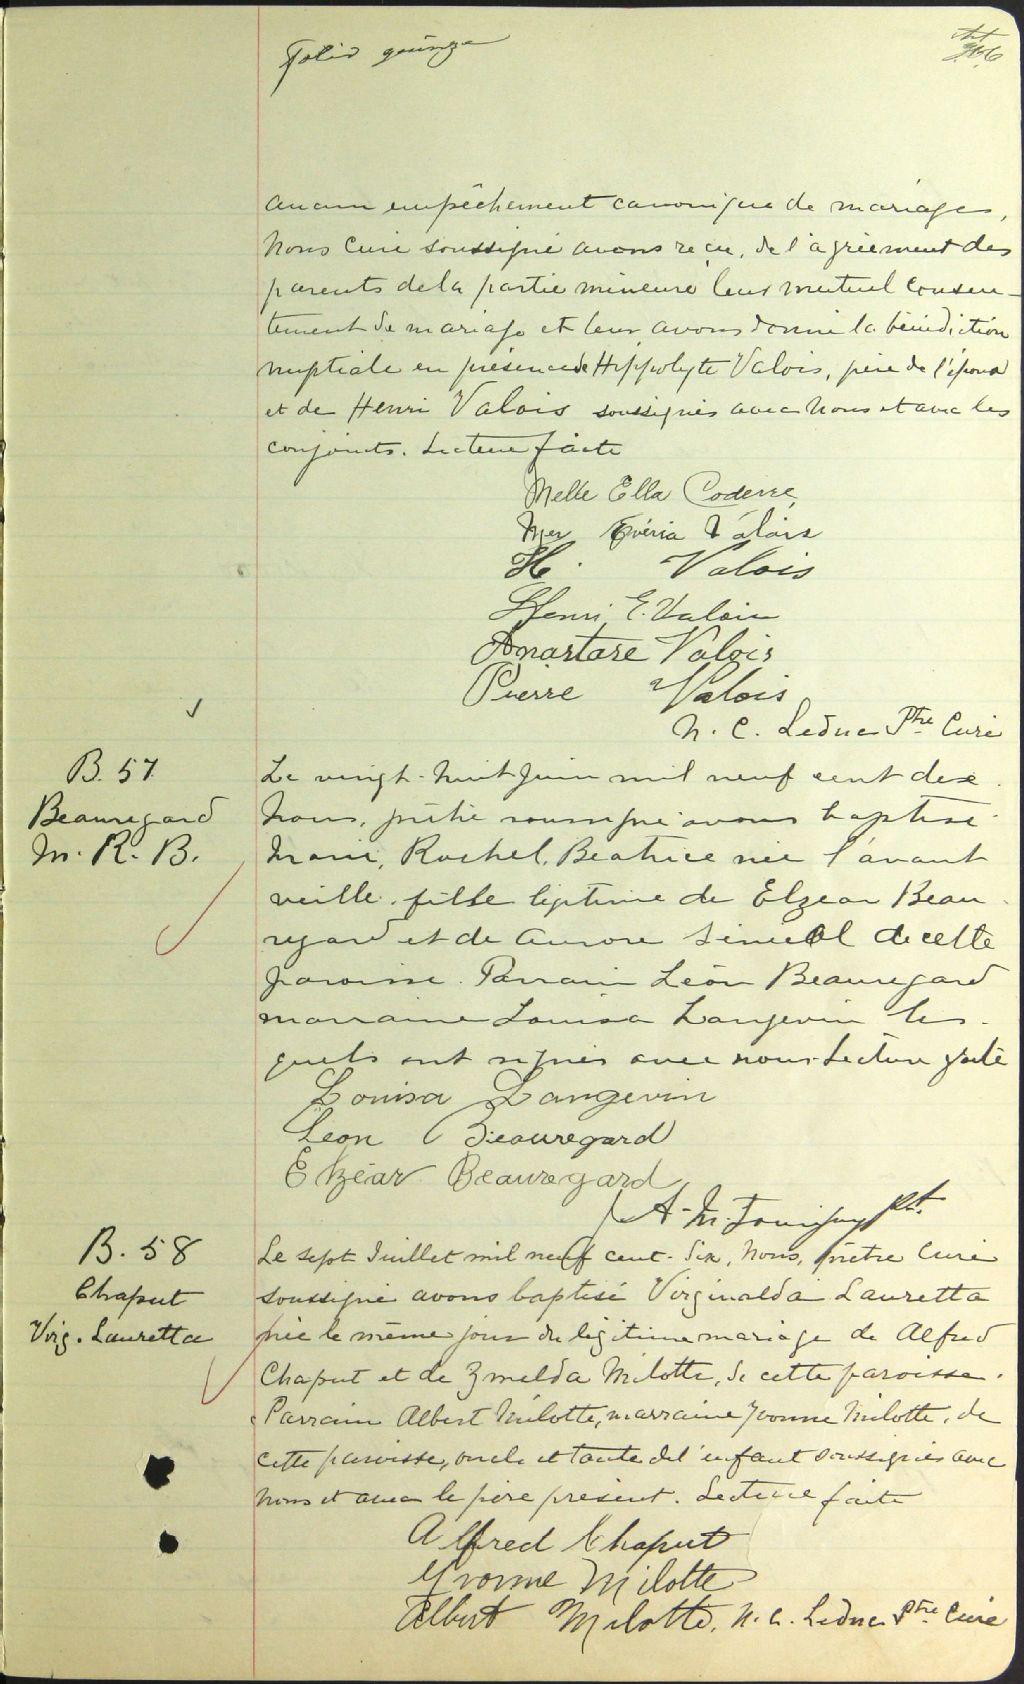 Folio quinze
aucun empêchement canonique de mariage,
Nous Curé soussigné avons reçu, de l'agrément des
parents de la partie mineure leur mutuel consen-
tement de mariage et leur avons donné la bénédiction
nuptiale en présence de Hippolyte Valois, père de l'époux
et de Henri Valois soussignés avec nous et avec les
conjoints. Lecture faite
Melle Ella Coderre
Valois
H. Valois
Henri E. Valois
Anastase Valois
Pierre Valois
N. C. Leduc Ptre Curé
B. 57
Beauregard
M. R. B.
Le vingt-huit Juin mil neuf cent dix
Nous, prêtre soussigné avons baptisé
Marie, Rachel, Béatrice née l'avant
veille, fille légitime de Elzéar Beau-
regard et de Aurore de cette
paroisse. Parrain Léon Beauregard
marraine Louisa Langevin les-
quels ont signés avec nous. Lecture faite
Louisa Langevin
Leon Beauregard
Elzéar Beauregard
J. A. M. ptre
B. 58
Chaput
Virg. Lauretta
Le sept Juillet mil neuf cent-dix, Nous, prêtre Curé
soussigné avons baptisé Virginalda Lauretta
née le même jour du légitime mariage de Alfred
Chaput et de Zmelda Milotte, de cette paroisse.
Parrain Albert Milotte, marraine Yvonne Milotte, de
cette paroisse, oncle et tante de l'enfant soussignés avec
nous et avec le père présent. Lecture faite
Alfred Chaput
Yvonne Milotte
Albert Milotte, N. C. Leduc Ptre Curé